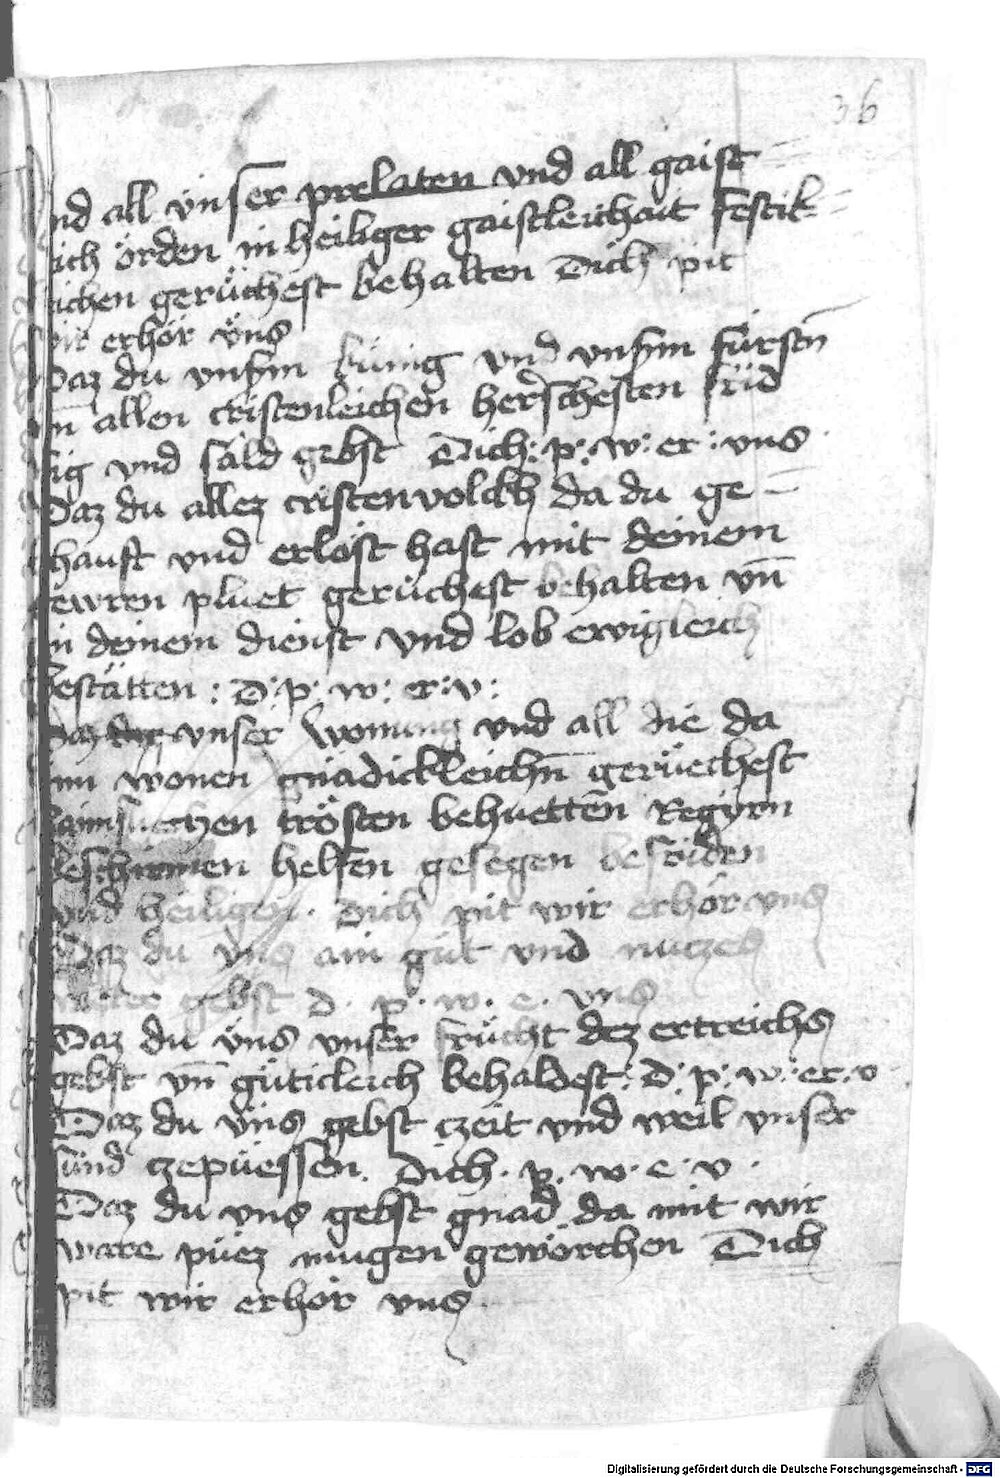 36
und all ünser prelaten und all gaist=
lich örden in heiliger gaistleichait Festik=
leichen gerüchest behalten Dich pit
wir erhör üns
Daz du unserm künig und unserm fürsten̄
vn̄ allen cristenleichen herscheften frid
sig und säld gebst Dich: p: w: er: uns
Daz du allez cristenvolckh da du ge=
chauft und erlöst hast mit deinem
tewren pluet gerüchest behalten vn̄
in deinem dienst und lob ewigleich
bestätten: D: p: w: er: v:
Daz unser wonung und all die da
inn wonen gnädickleichn̄ gerüechest
haimsuechen trösten behuettēn Regyrn
beschirmen helfen gesegen befriden
und heiligen. Dich pit wir erhör uns
Daz du uns ain gut und nuczes
weter gebst D. p. w. e. uns
Daz du üns unser frücht dez ertreichs
gebst vn̄ güticleich behaldest: D: p: w: er. v
Daz du üns gebst czeit und weil unser
sünd czepüessen. Dich. p. w. e. v.
Daz du uns gebst gnad da mit wir
ware püez mugen gewörchen Dich
pit wir erhör uns.
Digitalisierung gefördert durch die Deutsche Forschungsgemeinschaft - DFG